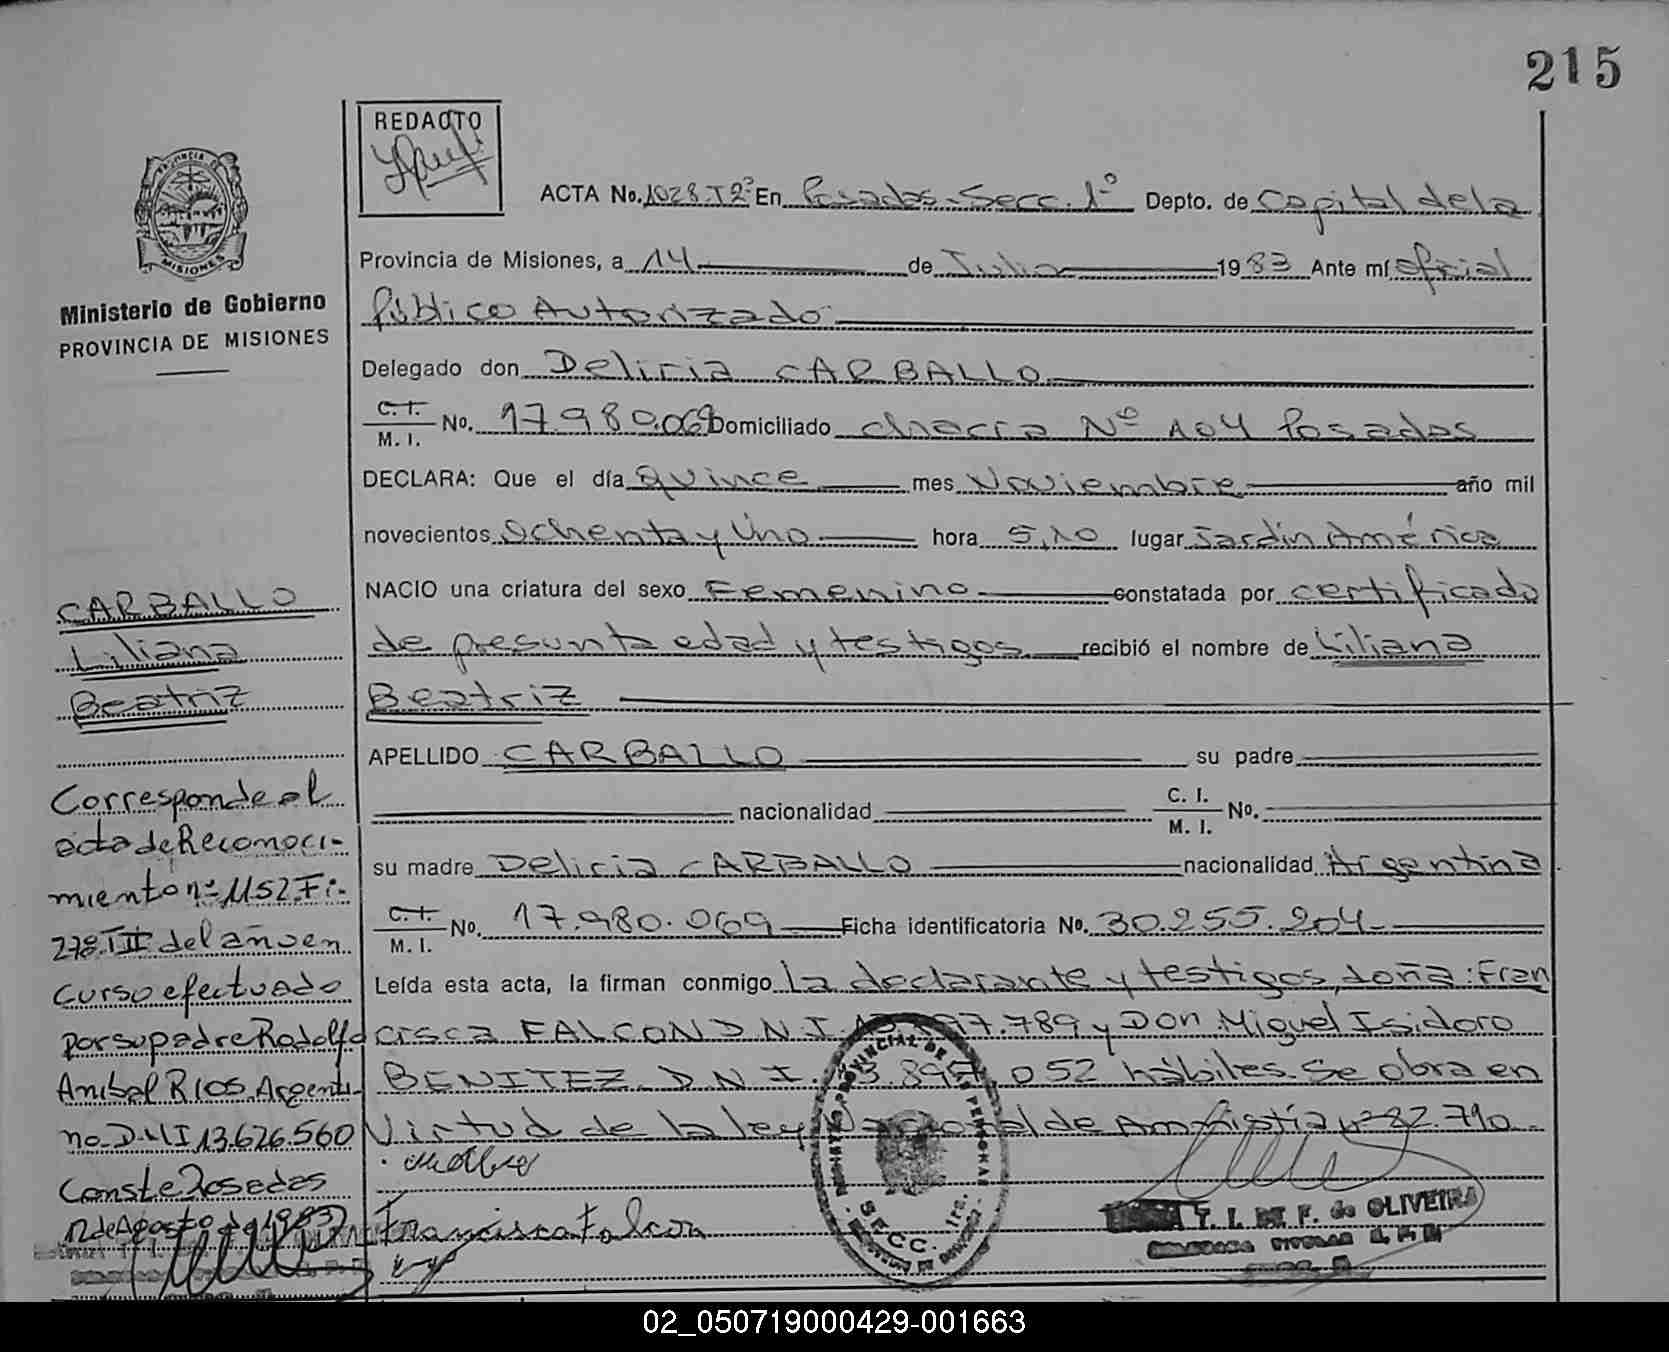 215
REDACTO
ACTA No. 1028.T2º En Posadas-Secc. 1º Depto. de Capital de la
Provincia de Misiones, a 14 de Julio 1983 Ante mí oficial
Público Autorizado
Delegado don Delicia CARBALLO
C. I. M. I. No. 17.980.069 Domiciliado chacra Nº 104 Posadas
DECLARA: Que el día quince mes Noviembre año mil
novecientos ochenta y Uno hora 5,10 lugar Jardín América
NACIO una criatura del sexo Femenino constatada por certificado
de presunta edad y testigos recibió el nombre de Liliana
Beatriz
APELLIDO CARBALLO su padre
nacionalidad C. I. M. I. No.
su madre Delicia CARBALLO nacionalidad Argentina
C. I. M. I. No. 17.980.069 Ficha identificatoria No. 30.255.204
Leída esta acta, la firman conmigo la declarante y testigos, doña: Fran
cisca FALCON D N I. 97.789 y Don Miguel Isidoro
BENITEZ D N I. 052 hábiles. Se obra en
Virtud de la ley Nacional de Amnistía nº 22.790.
Francisca Falcon
T. I. F. de OLIVEIRA
PROVINCIA DE
MISIONES
Ministerio de Gobierno
PROVINCIA DE MISIONES
CARBALLO
Liliana
Beatriz
Corresponde al
acta de Reconoci-
miento nº 1152. Fº-
278. TIII del año en
curso efectuado
por su padre Rodolfo
Anibal RIOS, Argenti-
no. D.N.I 13.626.560
Conste Posadas
12 de Agosto de 1983
REGISTRO PROVINCIAL DE LAS PERSONAS
SECC. 1ra.
02_050719000429-001663